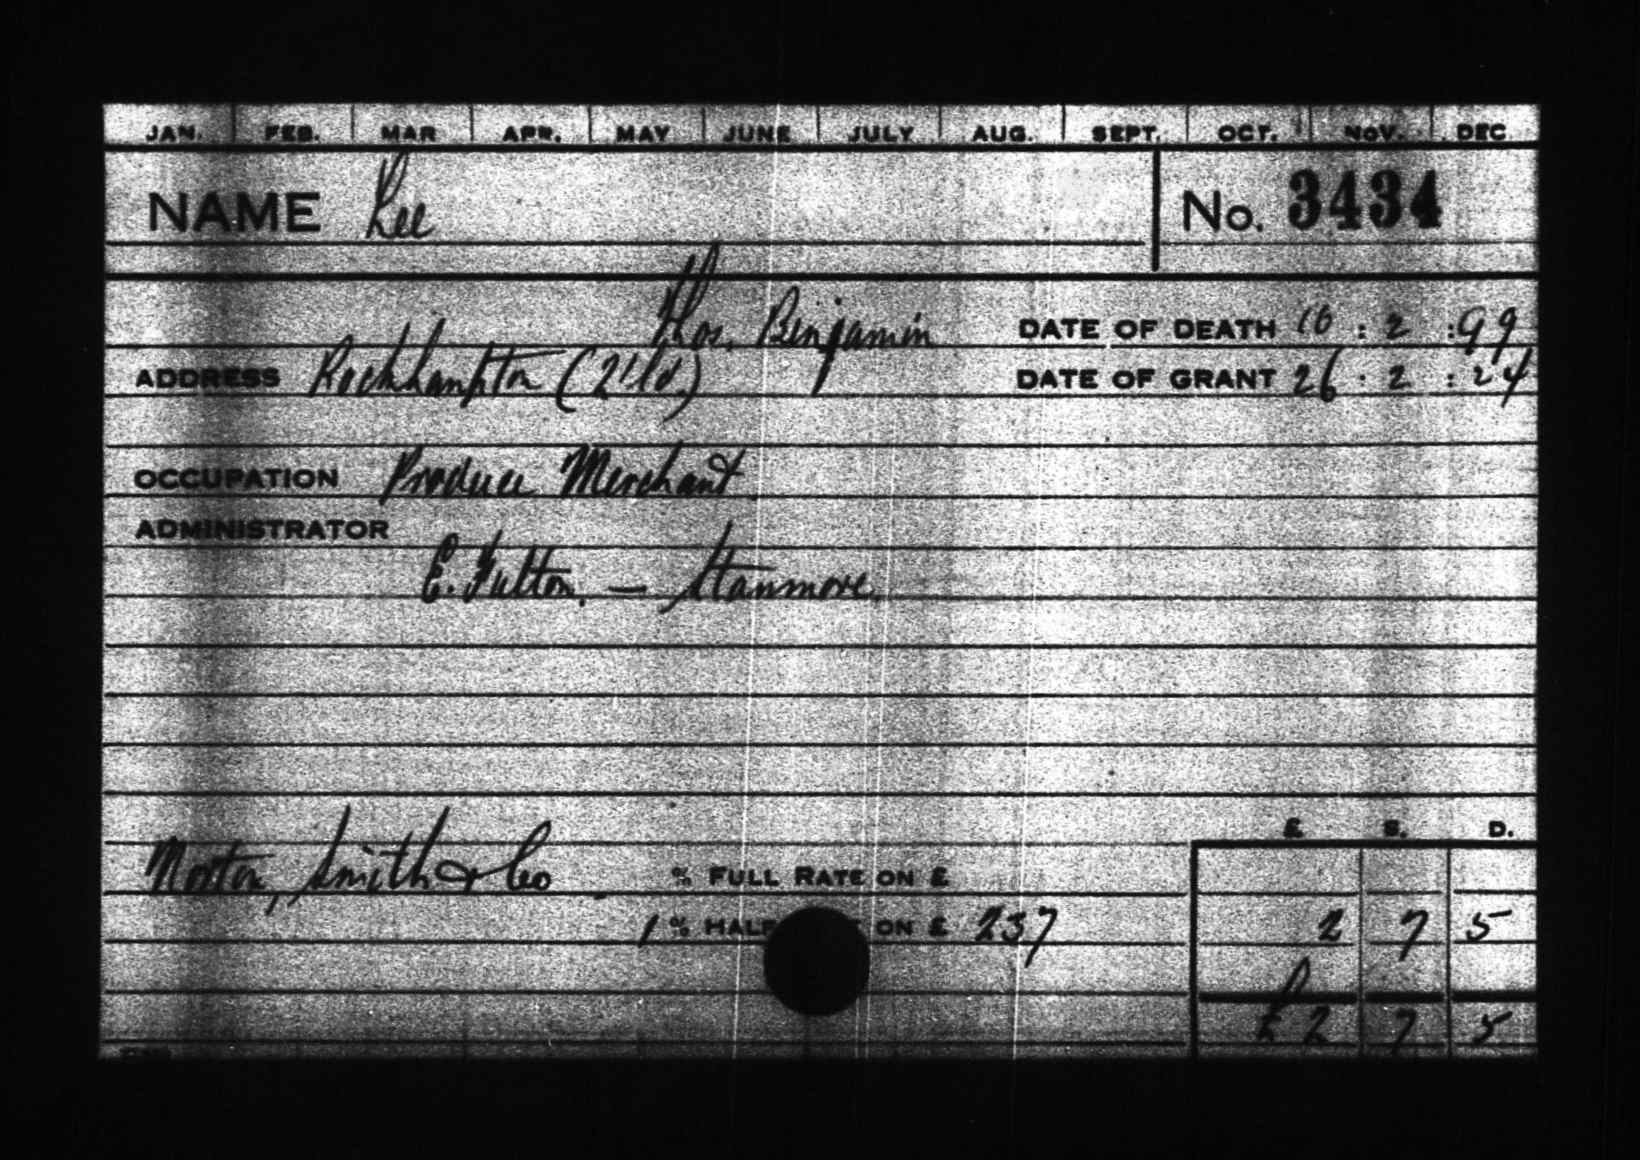 JAN. FEB. MAR APR. MAY JUNE JULY AUG. SEPT. OCT. NOV. DEC
NAME Lee No. 3434
Thos. Benjamin DATE OF DEATH 10 : 2 : 99
ADDRESS Rockhampton (Q'ld.) DATE OF GRANT 26 : 2 : 24
OCCUPATION Produce Merchant
ADMINISTRATOR
E. Fulton. — Stanmore.
£ S. D.
Norton, Smith & Co % FULL RATE ON £
1 % HALF ON £ 237 2 7 5
£2 7 5